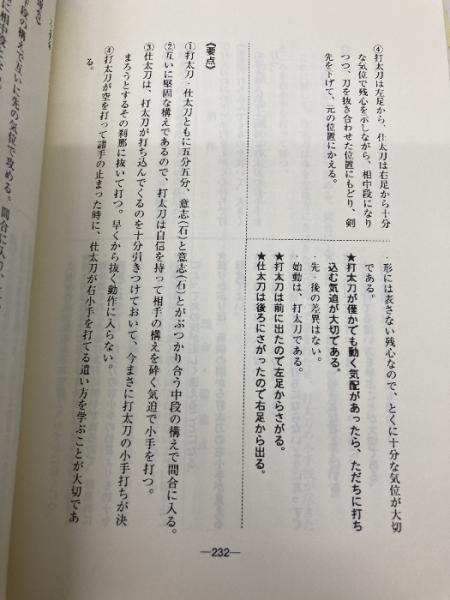 ④打太刀は左足から、仕太刀は右足から十分
な気位で残心を示しながら、相中段になり
つつ、刀を抜き合わせた位置にもどり、剣
先を下げて、元の位置にかえる。
・形には表さない残心なので、とくに十分な気位が大切
である。
★打太刀が僅かでも動く気配があったら、ただちに打ち
込む気迫が大切である。
・先・後の差異はない。
・始動は、打太刀である。
★打太刀は前に出たので左足からさがる。
★仕太刀は後ろにさがったので右足から出る。
《要点》
①打太刀・仕太刀ともに五分五分、意志(石)と意志(石)とがぶつかり合う中段の構えで間合に入る。
②互いに堅固な構えであるので、打太刀は自信を持って相手の構えを砕く気迫で小手を打つ。
③仕太刀は、打太刀が打ち込んでくるのを十分引きつけておいて、今まさに打太刀の小手打ちが決
まろうとするその刹那に抜いて打つ。早くから抜く動作に入らない。
④打太刀が空を打って諸手の止まった時に、仕太刀が右小手を打てる遣い方を学ぶことが大切であ
る。
―232―
中段の構えで互いに先の気位で攻める。間合に入り、